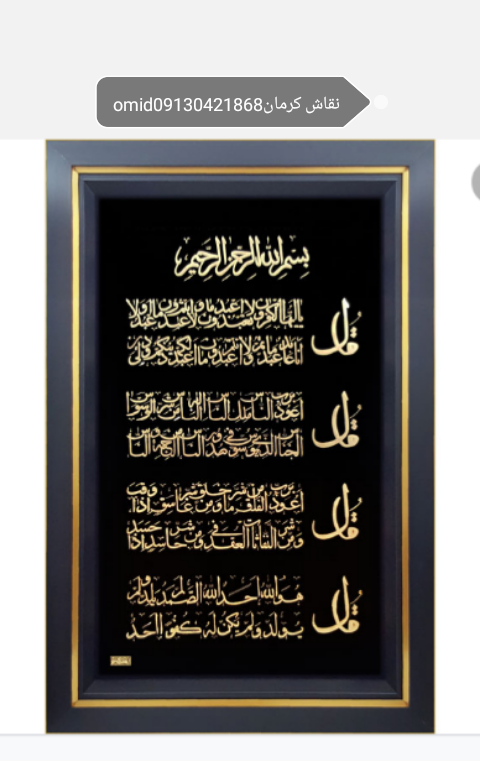 نقاش کرمانomid09130421868
بسم الله الرحمن الرحیم
قل
یا ایها الکافرون لا اعبد ما تعبدون ولا
انا عابد ما عبدتم ولا
قل
اعوذ برب الناس ملک الناس اله الناس من شر الوسواس
الخناس الذی یوسوس فی صدور الناس من الجنة و الناس
قل
اعوذ برب الفلق من شر ما خلق و من شر غاسق اذا وقب
و من شر النفاثات فی العقد و من شر حاسد اذا حسد
قل
هو الله احد الله الصمد لم یلد و لم
یولد و لم یکن له کفوا احد